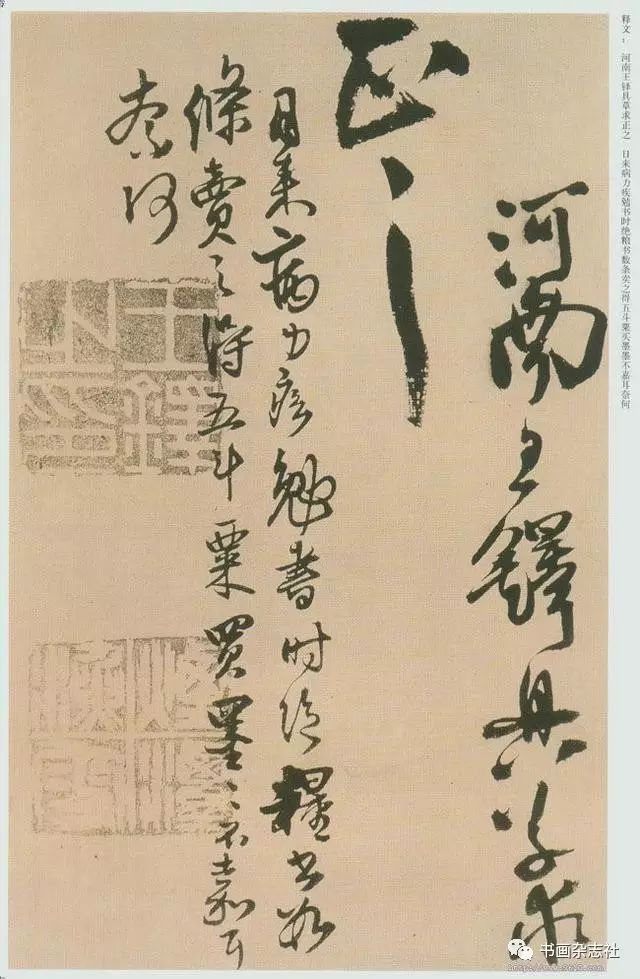 释文： 河南王铎具草求正之 日来病力疾勉书时绝粮书数条卖之得五斗粟买墨墨不嘉耳奈何
河南王鐸具草求
正之
日来病力疾勉書时绝糧書数
條賣之得五斗粟買墨〻不嘉耳
奈何
王鐸之印
书画杂志社